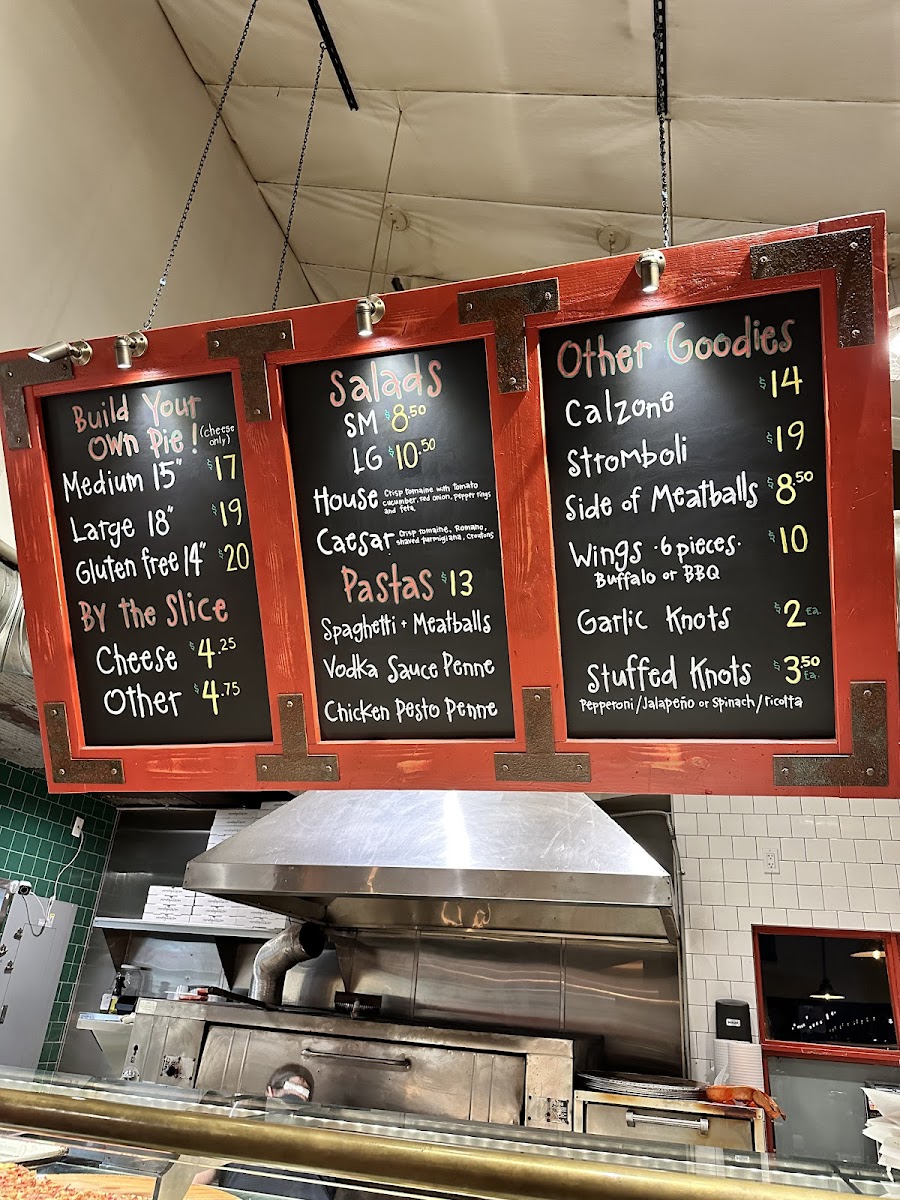 Build Your
Own Pie! (cheese only)
Medium 15" $17
Large 18" $19
Gluten free 14" $20
By the Slice
Cheese $4.25
Other $4.75
Salads
SM $8.50
LG $10.50
House Crisp romaine with Tomato
cucumber, red onion, Pepper rings
and feta.
Caesar Crisp romaine, Romano,
shaved parmigiana, Croutons
Pastas $13
Spaghetti + Meatballs
Vodka Sauce Penne
Chicken Pesto Penne
Other Goodies
Calzone $14
Stromboli $19
Side of Meatballs $8.50
Wings · 6 pieces · $10
Buffalo or BBQ
Garlic Knots $2 Ea.
Stuffed Knots $3.50 Ea.
Pepperoni/Jalapeño or Spinach/ricotta